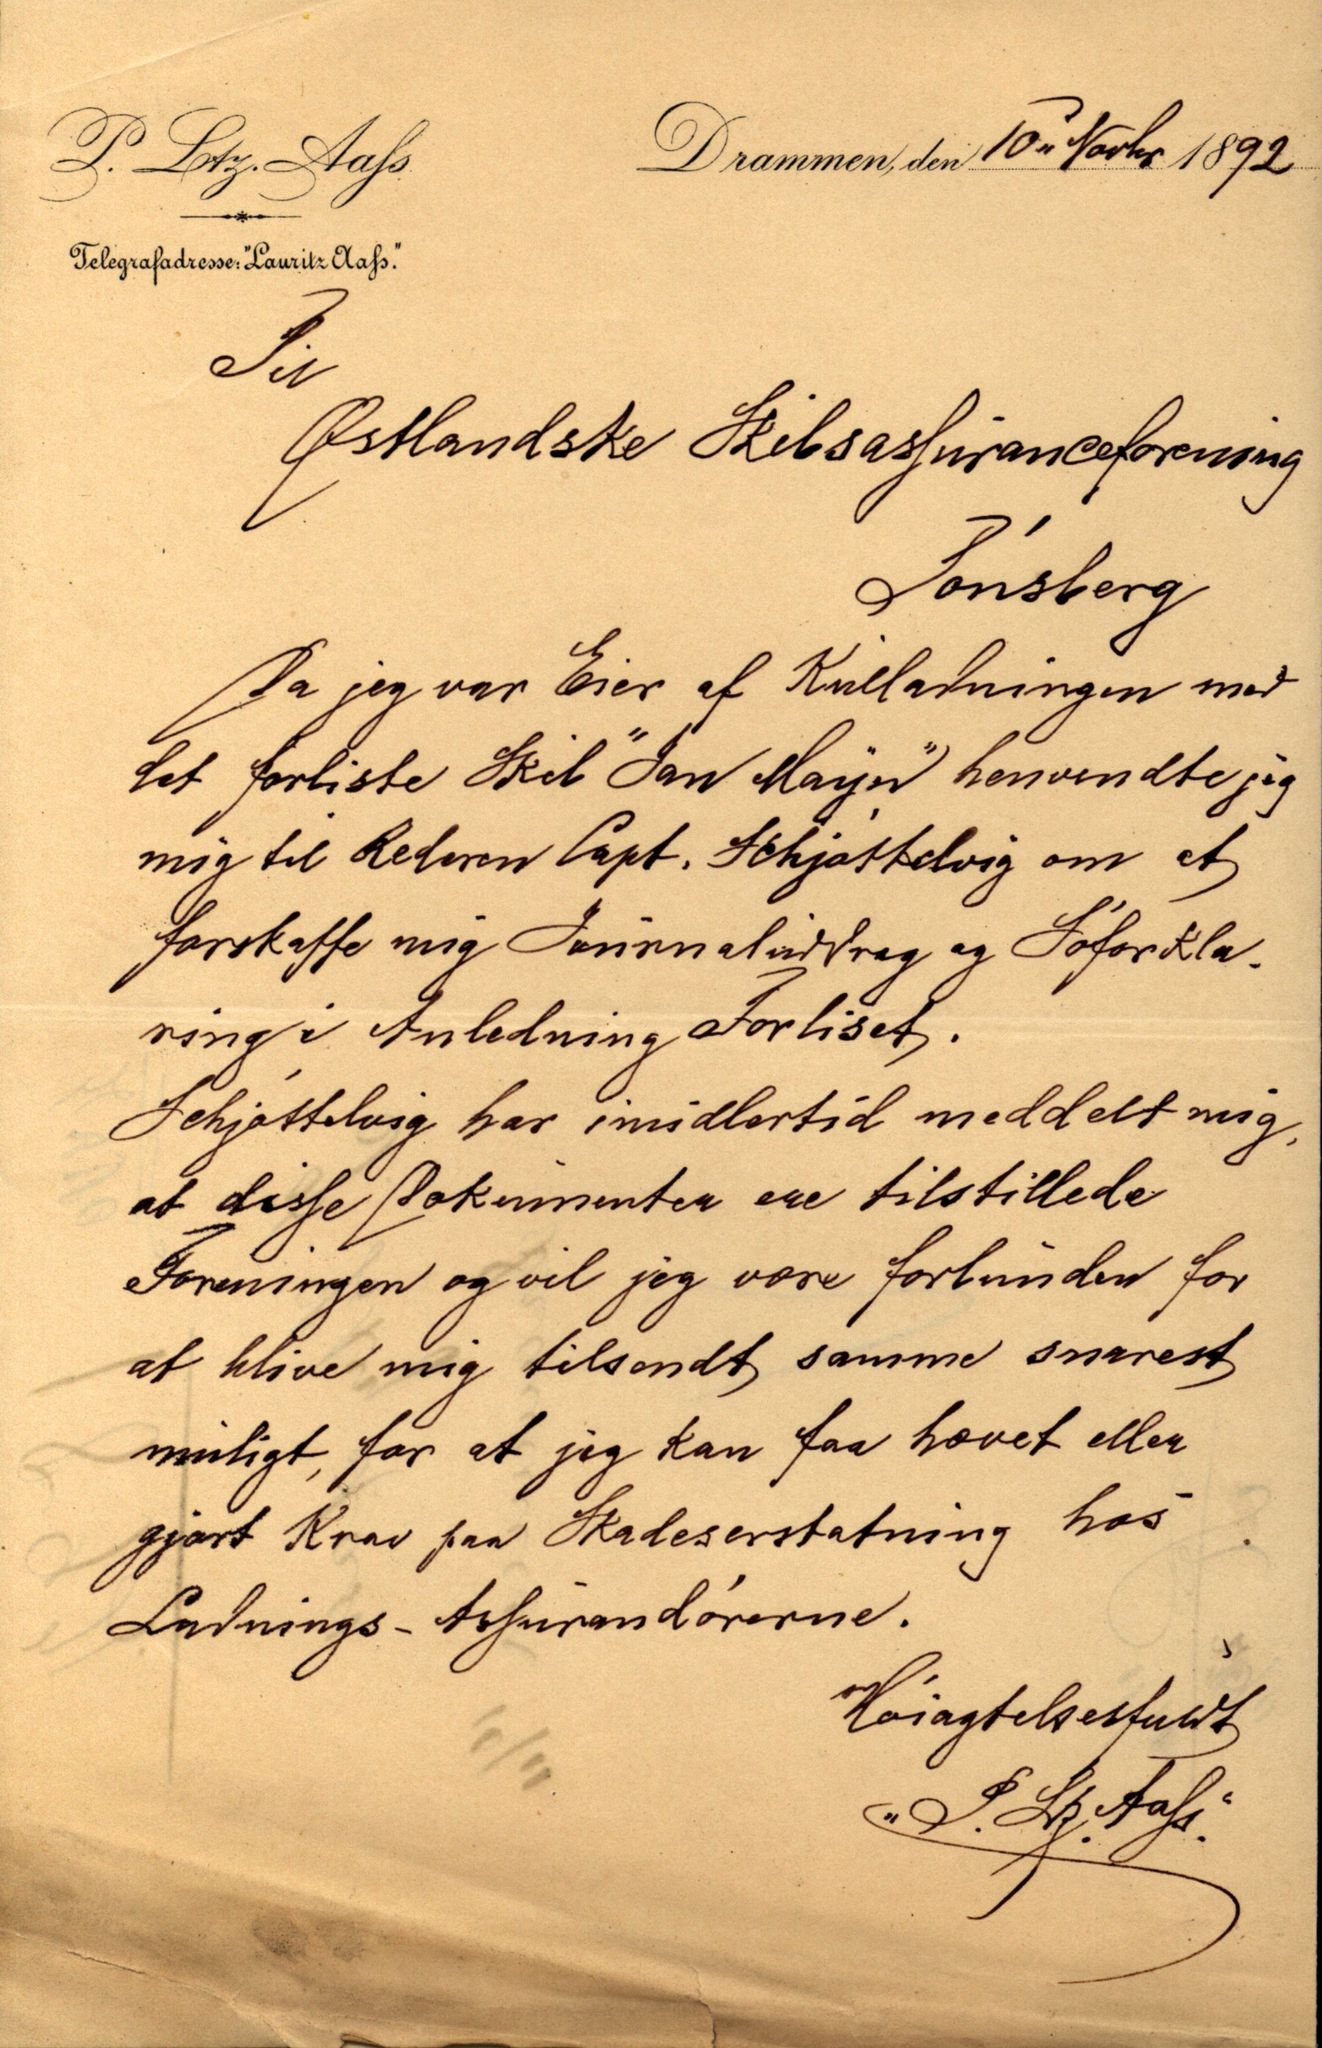 P. Ltz. Aass
Drammen, den 10" Novbr 1892
Telegrafadresse: "Lauritz Aass."
Til
Østlandske Skibsassuranceforening
Tónsberg
Da jeg var Eier af Kulladningen med
det forliste Skib "Jan Mayn" henvendte jeg
mig til Rederen Capt. Schjøttelvig om at
forskaffe mig Journaluddrag og Søforkla-
ring i Anledning Forliset.
Schjøttelvig har imidlertid meddelt mig,
at disse Dokumenter ere tilstillede
Foreningen og vil jeg være forbunden for
at blive mig tilsendt samme snarest
muligt, for at jeg kan faa hævet eller
gjort Krav paa Skadeserstatning hos
Ladnings-Assurandørerne.
Høiagtelsesfuldt
"P. Ltz. Aass."